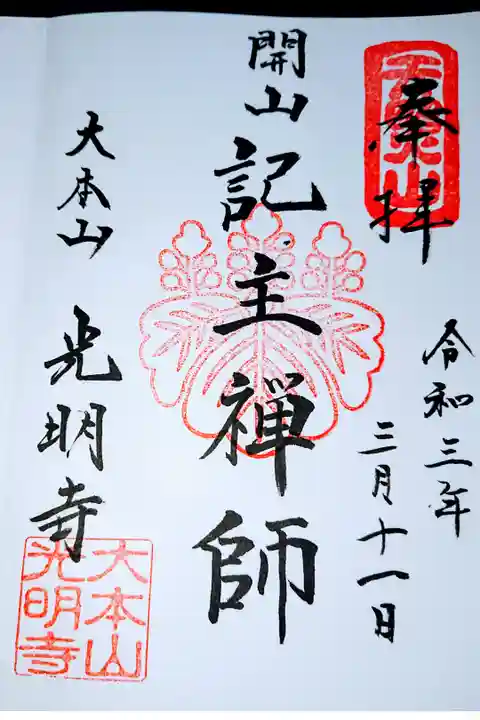 奉拝
天照山
令和三年
三月十一日
開山
記主禅師
大本山
光明寺
大本山
光明寺